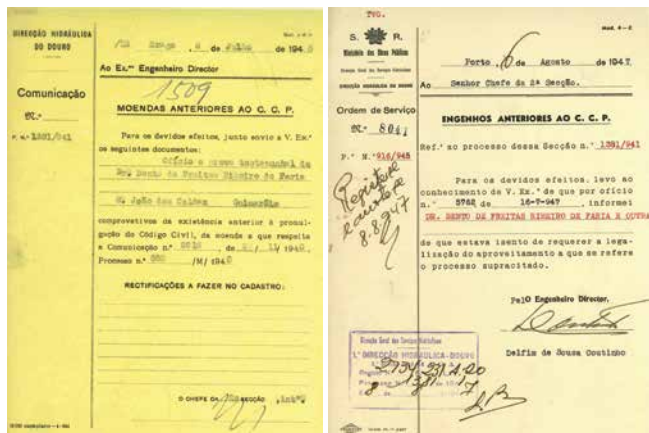 DIRECÇÃO HIDRÁULICA
DO DOURO
Comunicação
N.º
P. n.º 1381/941
Braga, 4 de Julho de 194
Ao Ex.mo Engenheiro Director
1509
MOENDAS ANTERIORES AO C. C. P.
Para os devidos efeitos, junto envio a V. Ex.ª
os seguintes documentos:
Ofício e prova testemunhal de
Dr. Bento de Freitas Ribeiro de Faria
S. João das Caldas Guimarães
comprovativos da existência anterior à promul-
gação do Código Civil, da moenda a que respeita
a Comunicação n.º de / 11/ 1940,
Processo n.º /M/ 1940
RECTIFICAÇÕES A FAZER NO CADASTRO:
O CHEFE DA SECÇÃO, Intº
TVG.
S. R.
Ministério das Obras Públicas
Direcção Geral dos Serviços Hidráulicos
DIRECÇÃO HIDRÁULICA DO DOURO
Ordem de Serviço
N.º 8041
P.º N.º 916/945
Registe-se
e arquive-se
8.8.947
Mod. 4-C
Porto, 6 de Agosto de 1947
Ao Senhor Chefe da 2ª Secção.
ENGENHOS ANTERIORES AO C. C. P.
Ref.ª ao processo dessa Secção n.º 1381/941
Para os devidos efeitos, levo ao
conhecimento de V. Ex.ª de que por ofício
n.º 5762 de 16-7-947, informei
DR. BENTO DE FREITAS RIBEIRO DE FARIA E OUTRA
de que estava isento de requerer a lega-
lização do aproveitamento a que se refere
o processo supracitado.
Pelo Engenheiro Director,
Delfim de Sousa Coutinho
Direcção Geral dos Serviços Hidráulicos
1.ª DIRECÇÃO HIDRÁULICA-DOURO